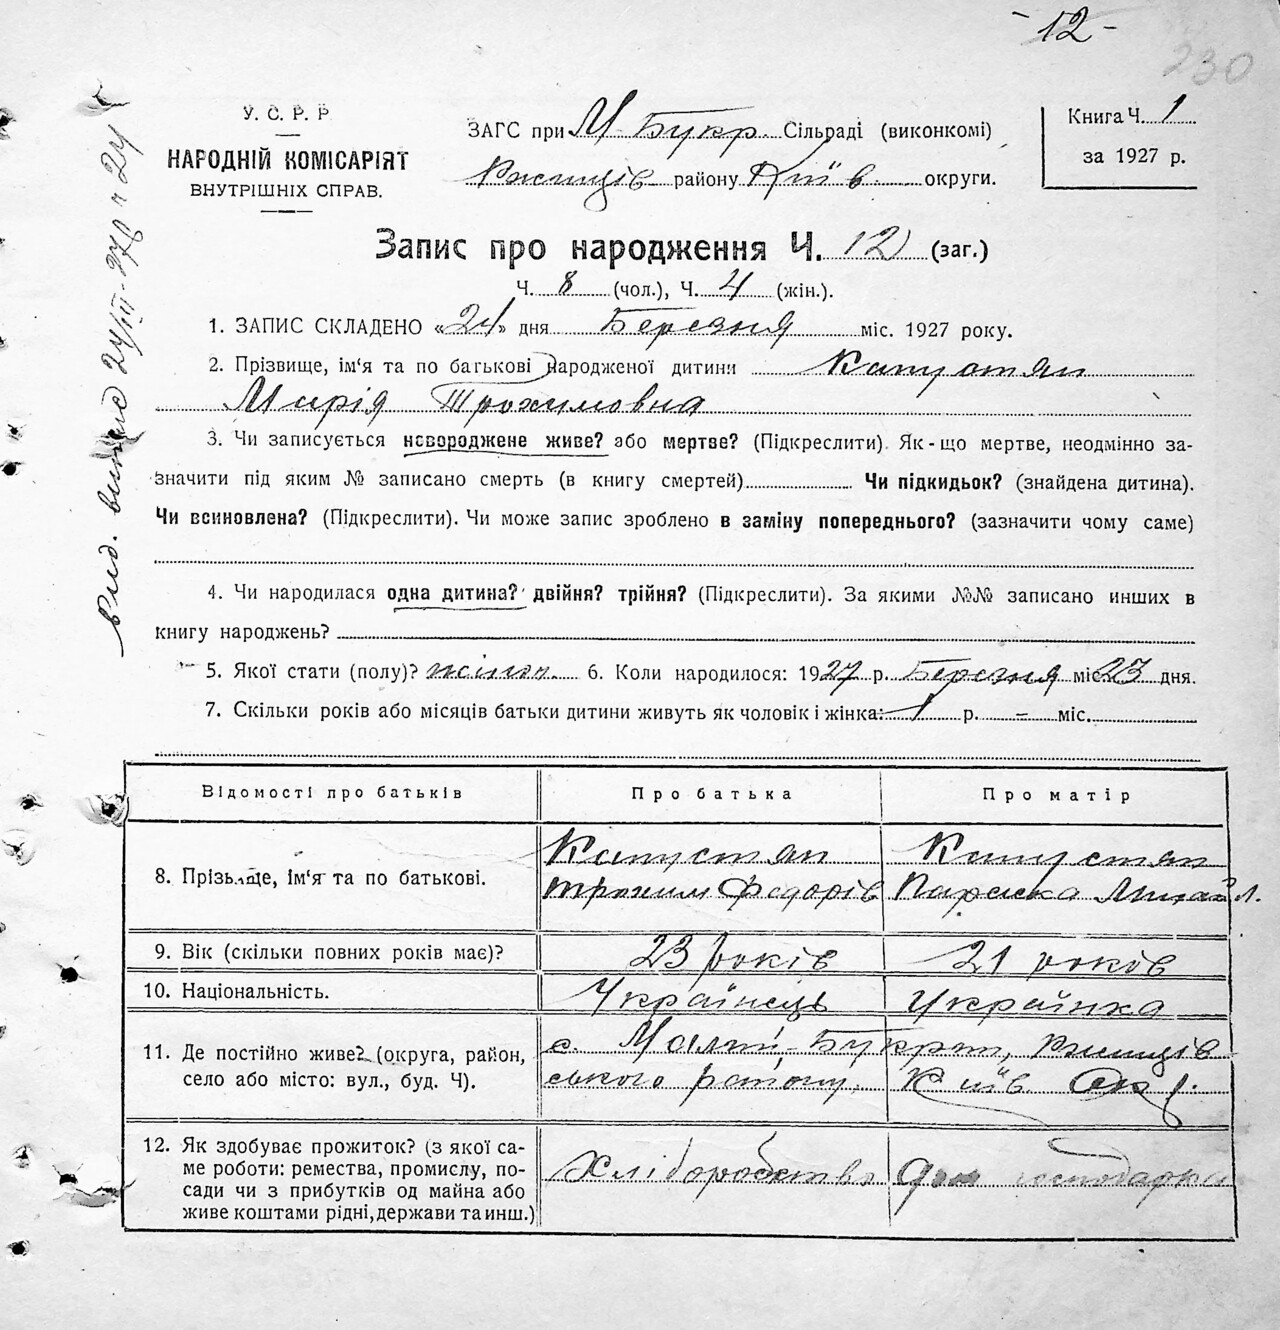 - 12 -
230
У. С. Р. Р
НАРОДНІЙ КОМІСАРІЯТ
ВНУТРІШНІХ СПРАВ.
ЗАГС при М-Букр. Сільраді (виконкомі)
Ржищів району Київ округи.
Книга Ч. 1
за 1927 р.
Запис про народження Ч. 12 (заг.)
Ч. 8 (чол.), Ч. 4 (жін.).
1. ЗАПИС СКЛАДЕНО «24» дня Березня міс. 1927 року.
2. Прізвище, ім'я та по батькові народженої дитини Капустян
Марія Трохимовна
3. Чи записується новороджене живе? або мертве? (Підкреслити). Як-що мертве, неодмінно за-
значити під яким № записано смерть (в книгу смертей) Чи підкидьок? (знайдена дитина).
Чи всиновлена? (Підкреслити). Чи може запис зроблено в заміну попереднього? (зазначити чому саме)
4. Чи народилася одна дитина? двійня? трійня? (Підкреслити). За якими №№ записано инших в
книгу народжень?
5. Якої стати (полу)? жіноч. 6. Коли народилося: 1927 р. Березня міс. 23 дня.
7. Скільки років або місяців батьки дитини живуть як чоловік і жінка: 1 р. - міс.
Відомості про батьків Про батька Про матір
8. Прізьвще, ім'я та по батькові.
Капустян
Трохим Федорів
Капустян
Параска Михайл.
9. Вік (скільки повних років має)? 23 років 21 років
10. Національність. Українець Українка
11. Де постійно живе? (округа, район,
село або місто: вул., буд. Ч).
с. Малий-Букрин, Ржищів
ського району, Київ. Окр.
12. Як здобуває прожиток? (з якої са-
ме роботи: ремества, промислу, по-
сади чи з прибутків од майна або
живе коштами рідні, держави та инш.)
Хліборобство
дом господарка
вид. випис 24/III-27р ч 24